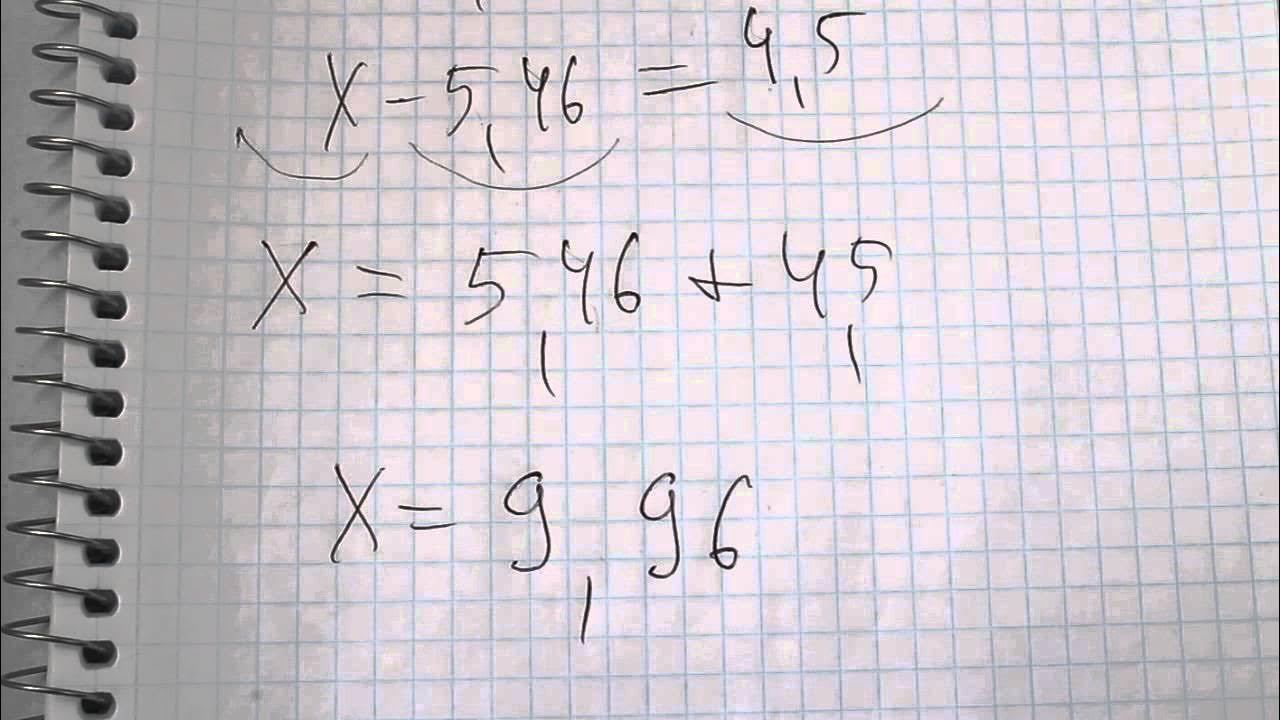 X - 5,46 = 4,5
X = 5,46 + 4,5
X = 9,96